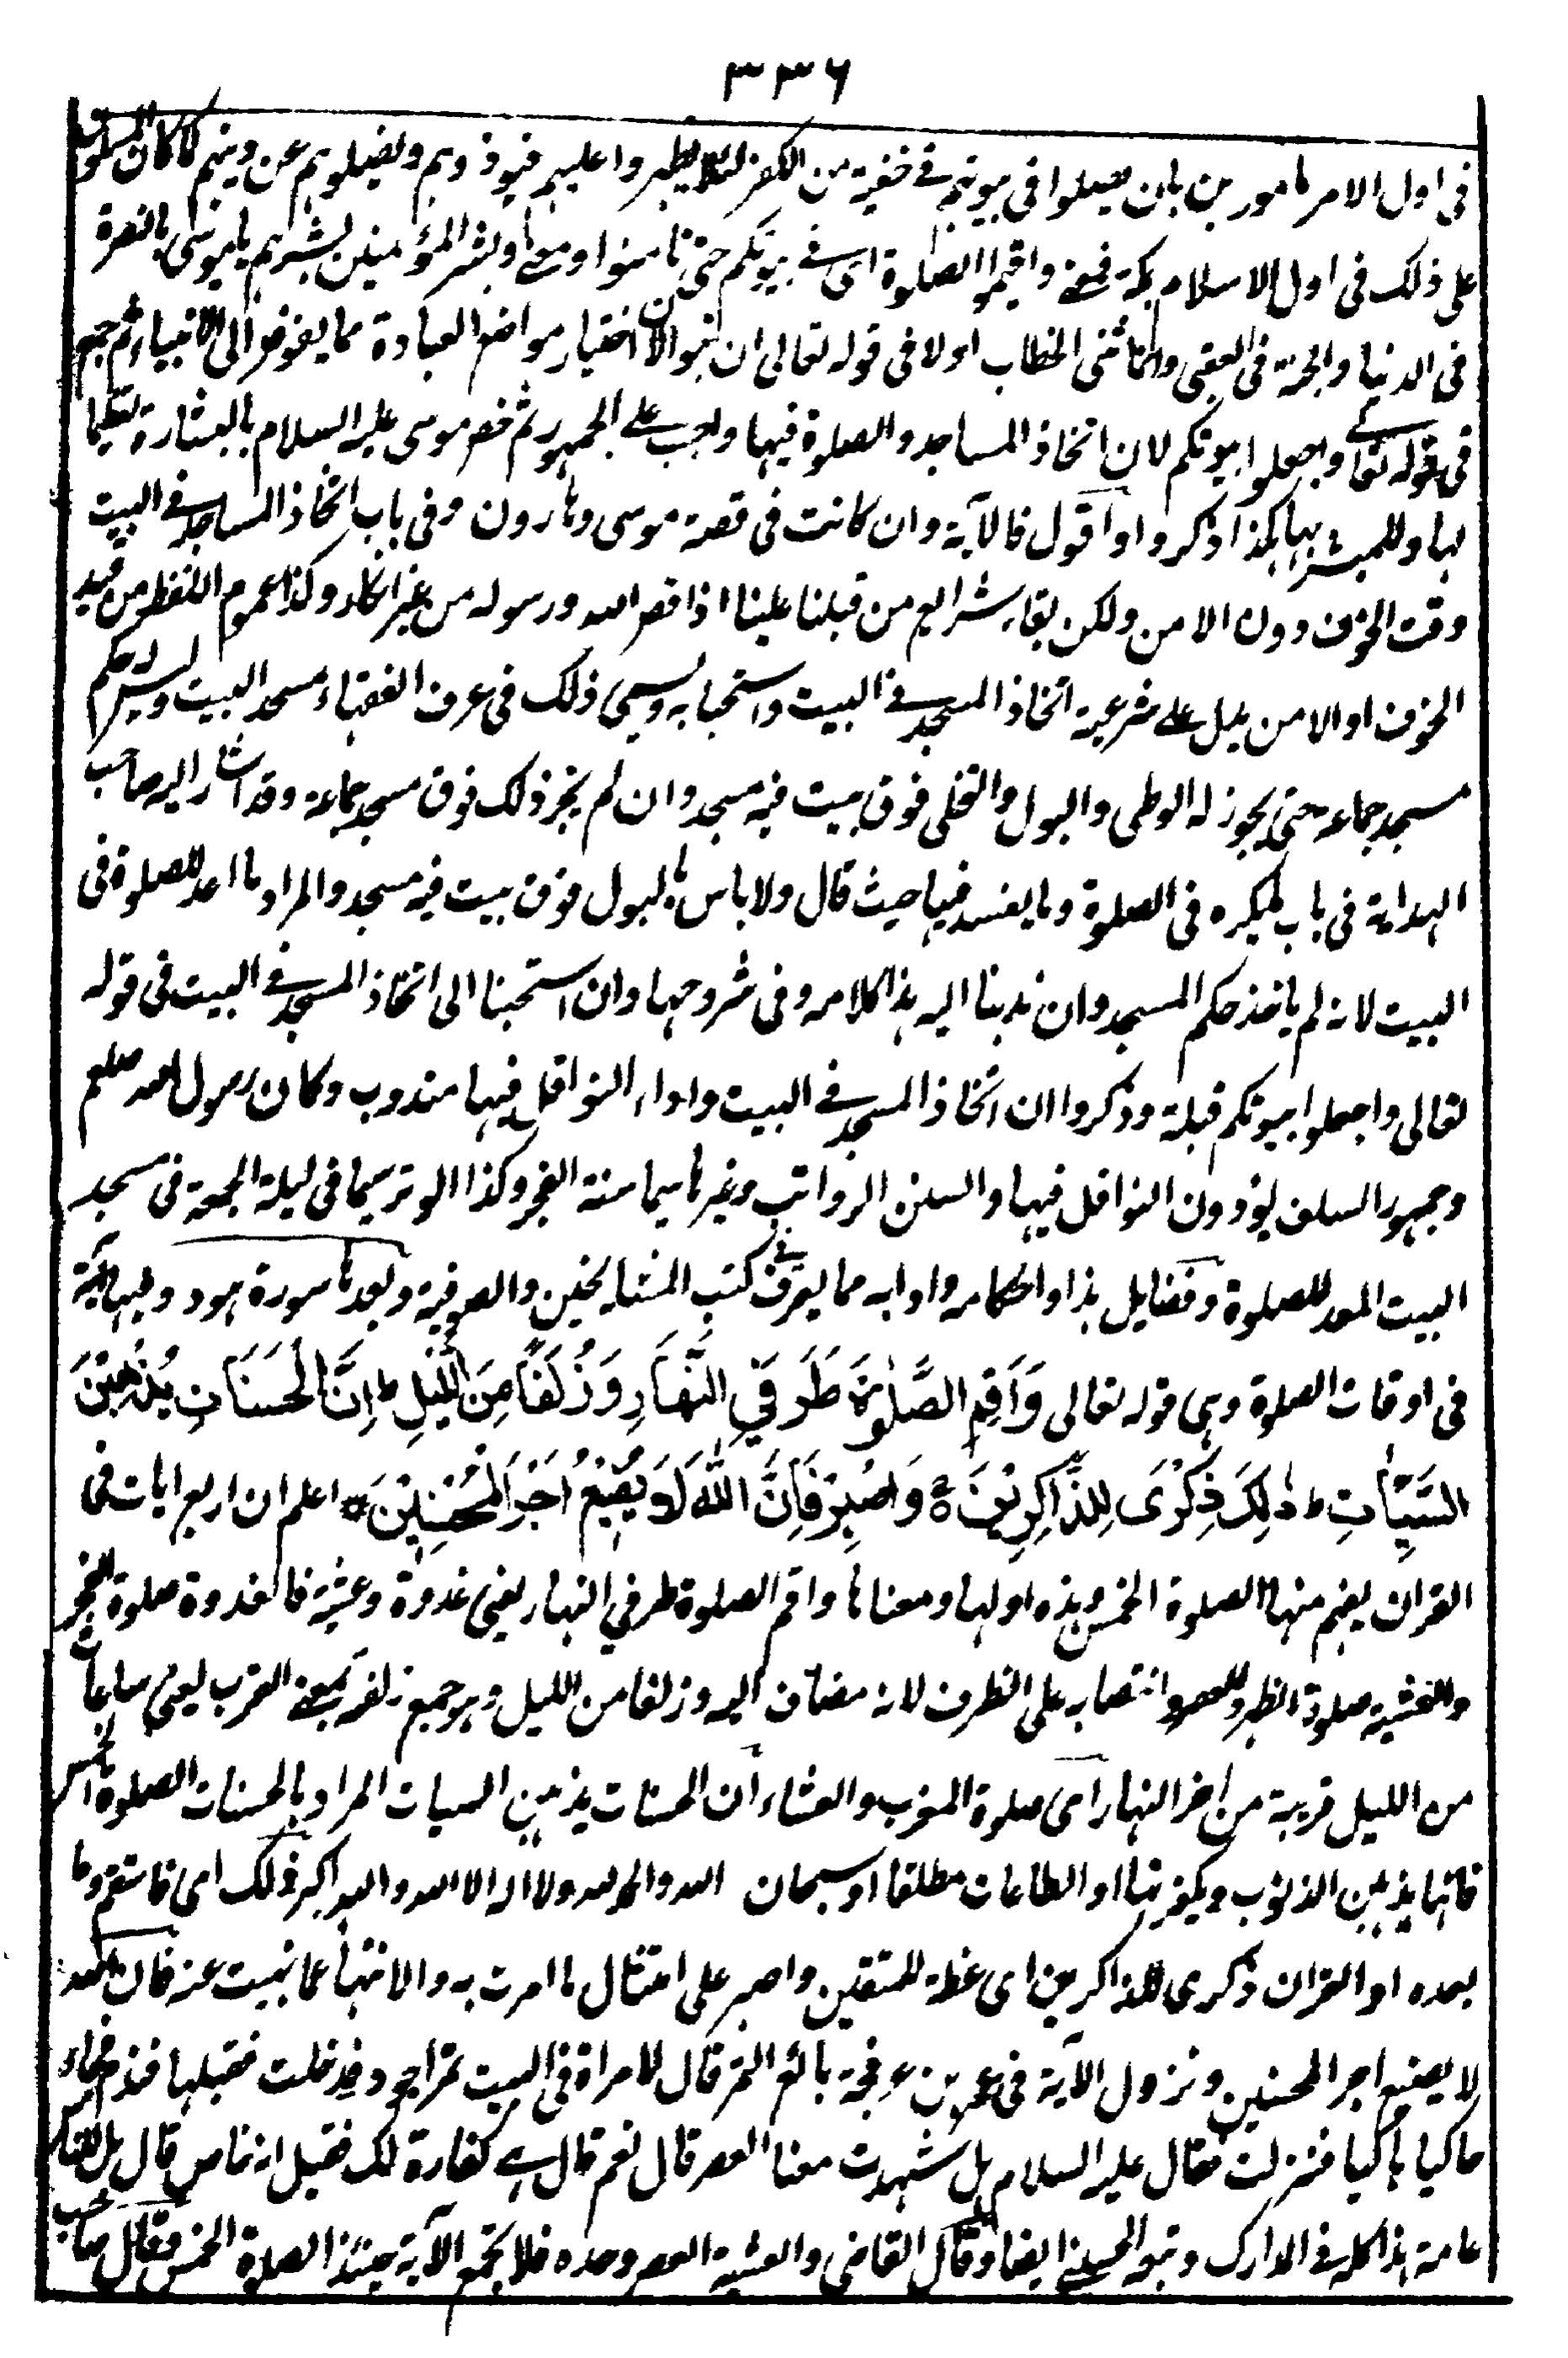 ۳۳۶
فى اول الامر مامورين بان يصلوا فى بيوتهم فى خفية من الكفر لئلا يظهروا عليهم فيوذوهم ويضلوهم عن دينهم كما كان المسلمون
على ذلك فى اول الاسلام بمكة فمعنى واقيموا الصلوة اى فى بيوتكم حتى تامنوا ومعنى وبشر المؤمنين بشرهم يا موسى بالنصرة
فى الدنيا والجنة فى العقبى وانما ثنى الخطاب اولا فى قوله تعالى ان تبوا لان اختيار مواضع العبادة مما يفوض الى الانبياء ثم جمع
فى قوله تعالى واجعلوا بيوتكم لان اتخاذ المساجد والصلوة فيها واجب على الجمهور ثم خص موسى عليه السلام بالبشارة تعظيما
لها وللمبشر بها هكذا ذكروا واقول فالآية وان كانت فى قصة موسى وهارون وفى باب اتخاذ المساجد فى البيت
وقت الخوف دون الامن ولكن بقاء شرايع من قبلنا علينا اذا قص الله ورسوله من غير انكار وكذا عموم اللفظ من قيد
الخوف او الامن يدل على شرعية اتخاذ المسجد فى البيت واستحبابه ويسمى ذلك فى عرف الفقهاء مسجد البيت وليس له حكم
مسجد جماعة حتى يجوز له الوطى والبول والتخلى فوق بيت فيه مسجد وان لم يجز ذلك فوق مسجد جماعة وقد اشار اليه صاحب
الهداية فى باب ما يكره فى الصلوة وما يفسد فيها حيث قال ولا باس بالبول فوق بيت فيه مسجد والمراد ما اعد للصلوة فى
البيت لانه لم ياخذ حكم المسجد وان ندبنا اليه هذا كلامه وفى شروحها وان استحبنا الى اتخاذ المسجد فى البيت فى قوله
تعالى واجعلوا بيوتكم قبلة وذكروا ان اتخاذ المسجد فى البيت واداء النوافل فيها مندوب وكان رسول الله صلعم
وجمهور السلف يؤدون النوافل فيها والسنن الرواتب وغيرها سيما سنة الفجر وكذا الوتر سيما فى ليلة الجمعة فى مسجد
البيت المعد للصلوة وفضايل هذا واحكامه وادابه مما يعرف فى كتب المشايخين والصوفية وبعدها سورة هود وفيها آية
فى اوقات الصلوة وهى قوله تعالى وَاَقِمِ الصَّلٰوةَ طَرَفَيِ النَّهَارِ وَزُلَفًا مِنَ اللَّيْلِ ط اِنَّ الْحَسَنَاتِ يُذْهِبْنَ
السَّيِّاٰتِ ط ذٰلِكَ ذِكْرٰى لِلذَّاكِرِيْنَ ه وَاصْبِرْ فَاِنَّ اللّٰهَ لَا يُضِيْعُ اَجْرَ الْمُحْسِنِيْنَ ه اعلم ان اربع ايات فى
القران يفهم منها الصلوة الخمس وهذه اولها ومعناها واقم الصلوة طرفي النهار يعنى غدوة وعشية فالغدوة صلوة الفجر
والعشية صلوة الظهر والعصر وانتصابه على الظرف لانه مضاف اليه وزلفا من الليل وهو جمع زلفة بمعنى القرب يعنى ساعات
من الليل قريبة من اخر النهار اى صلوة المغرب والعشاء ان الحسنات يذهبن السيات المراد بالحسنات الصلوة الخمس
فانها يذهبن الذنوب ويكفرنها او الطاعات مطلقا او سبحان الله والحمد لله ولا اله الا الله والله اكبر ذلك اى فاستقم وما
بعده او القران ذكرى للذاكرين اى عظة للمتقين واصبر على امتثال ما امرت به والانتهاء عما نهيت عنه فان الله
لا يضيع اجر المحسنين ونزول الآية فى عمرو بن عرفجة بائع التمر قال لامراة فى البيت تمر اجود فدخلت فقبلها فندم فجاء
حاكيا باكيا فنزلت فقال عليه السلام هل شهدت معنا العصر قال نعم قال هى كفارة لك فقيل انه خاص قال بل للناس
عامة هذا كله فى المدارك وتبعه الحسينى ايضا وقال القاضى والعشية العصر وحده فلا يجمع الآية حينئذ الصلوة الخمس وقال صاحب